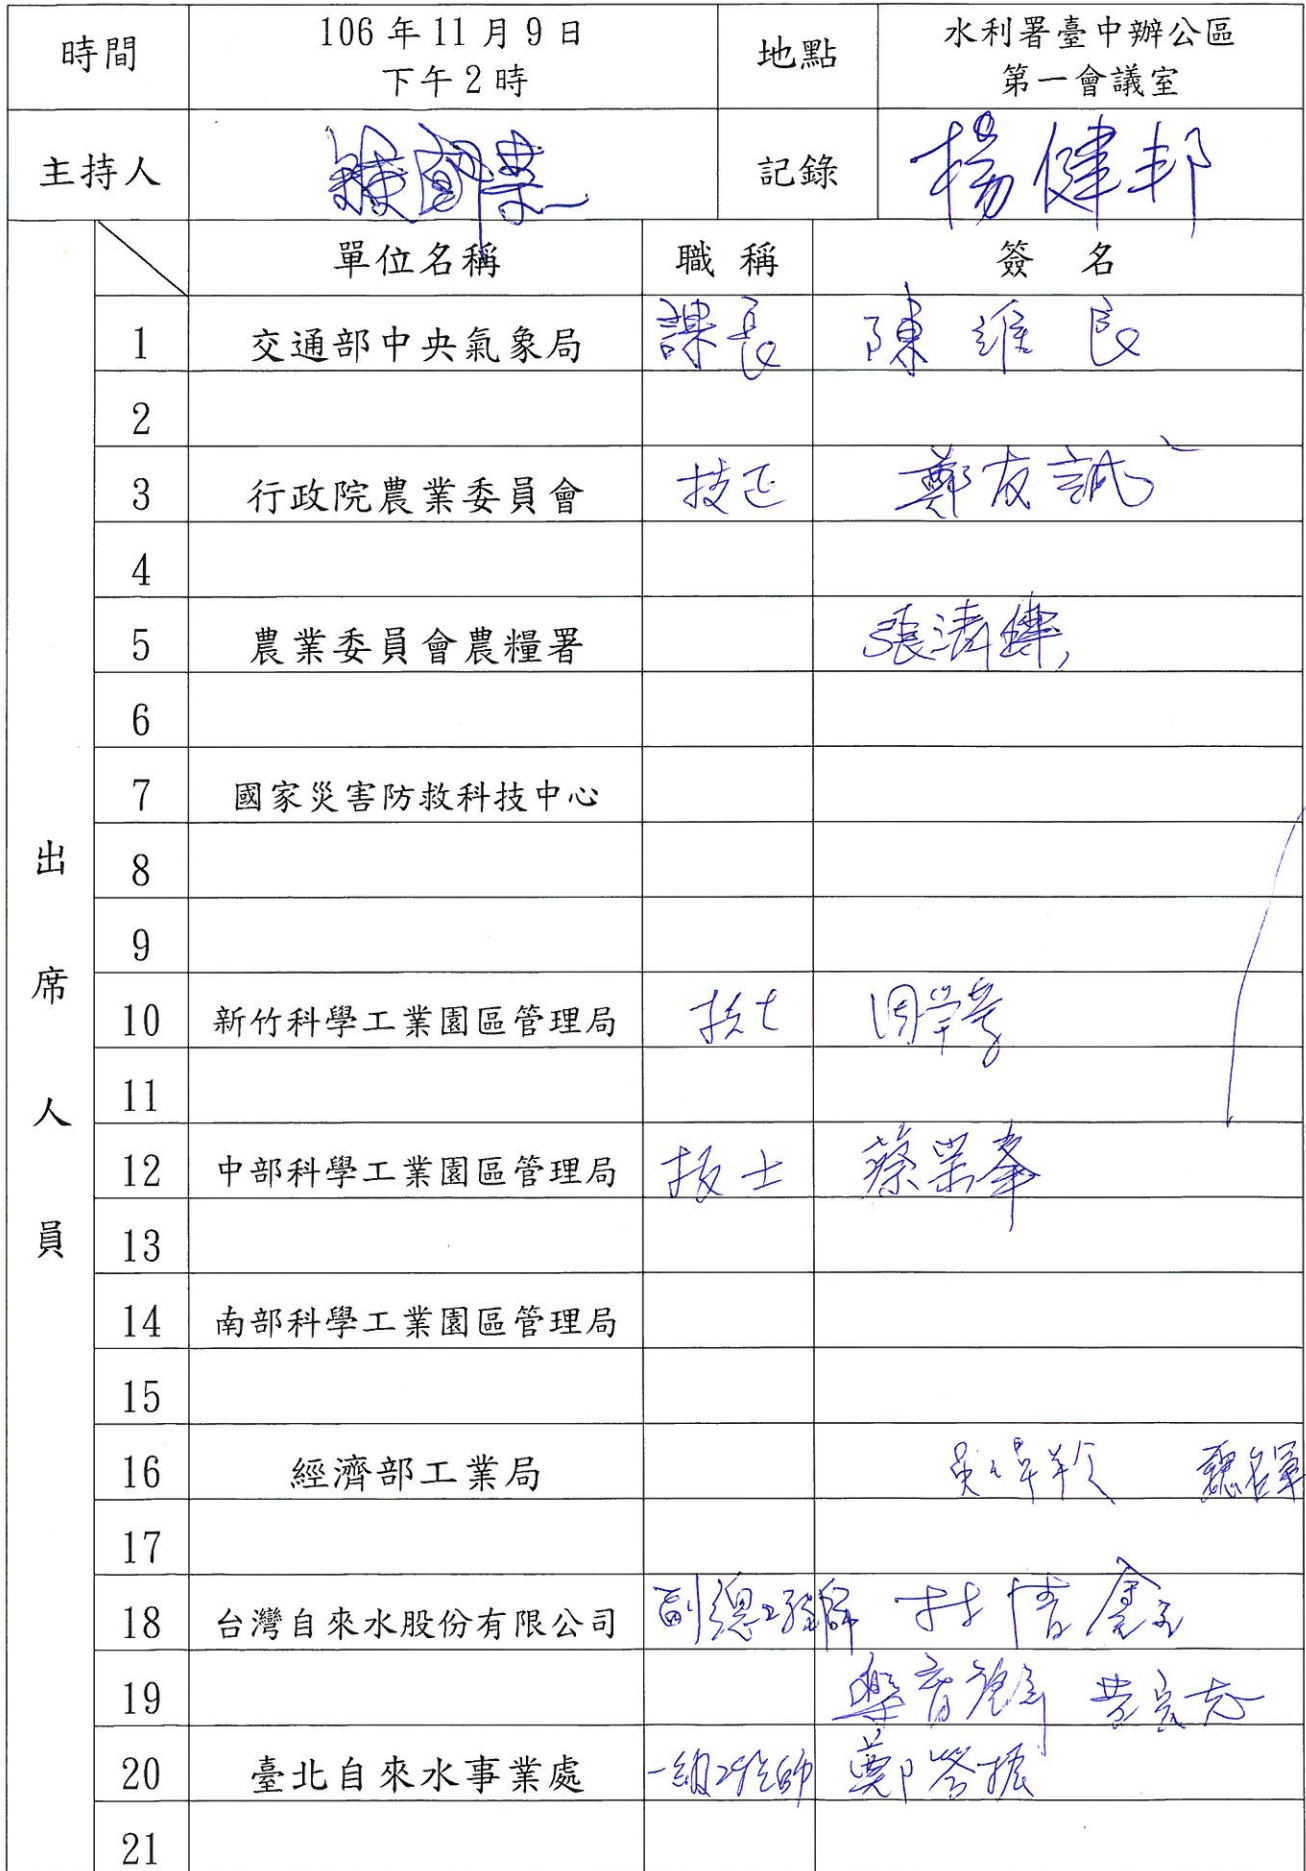 時間 106年11月9日 地點 水利署臺中辦公區
下午2時 第一會議室
主持人 記錄 楊健邦
單位名稱 職稱 簽名
1 交通部中央氣象局 課長 陳維良
2
3 行政院農業委員會 技正 鄭友誠
4
5 農業委員會農糧署 張清
6
7 國家災害防救科技中心
8
9
10 新竹科學工業園區管理局 技士 周學
11
12 中部科學工業園區管理局 技士 蔡榮峯
13
14 南部科學工業園區管理局
15
16 經濟部工業局 魏名軍
17
18 台灣自來水股份有限公司 副總工程師
19 黃
20 臺北自來水事業處 一級工程師 鄭
21
出席人員